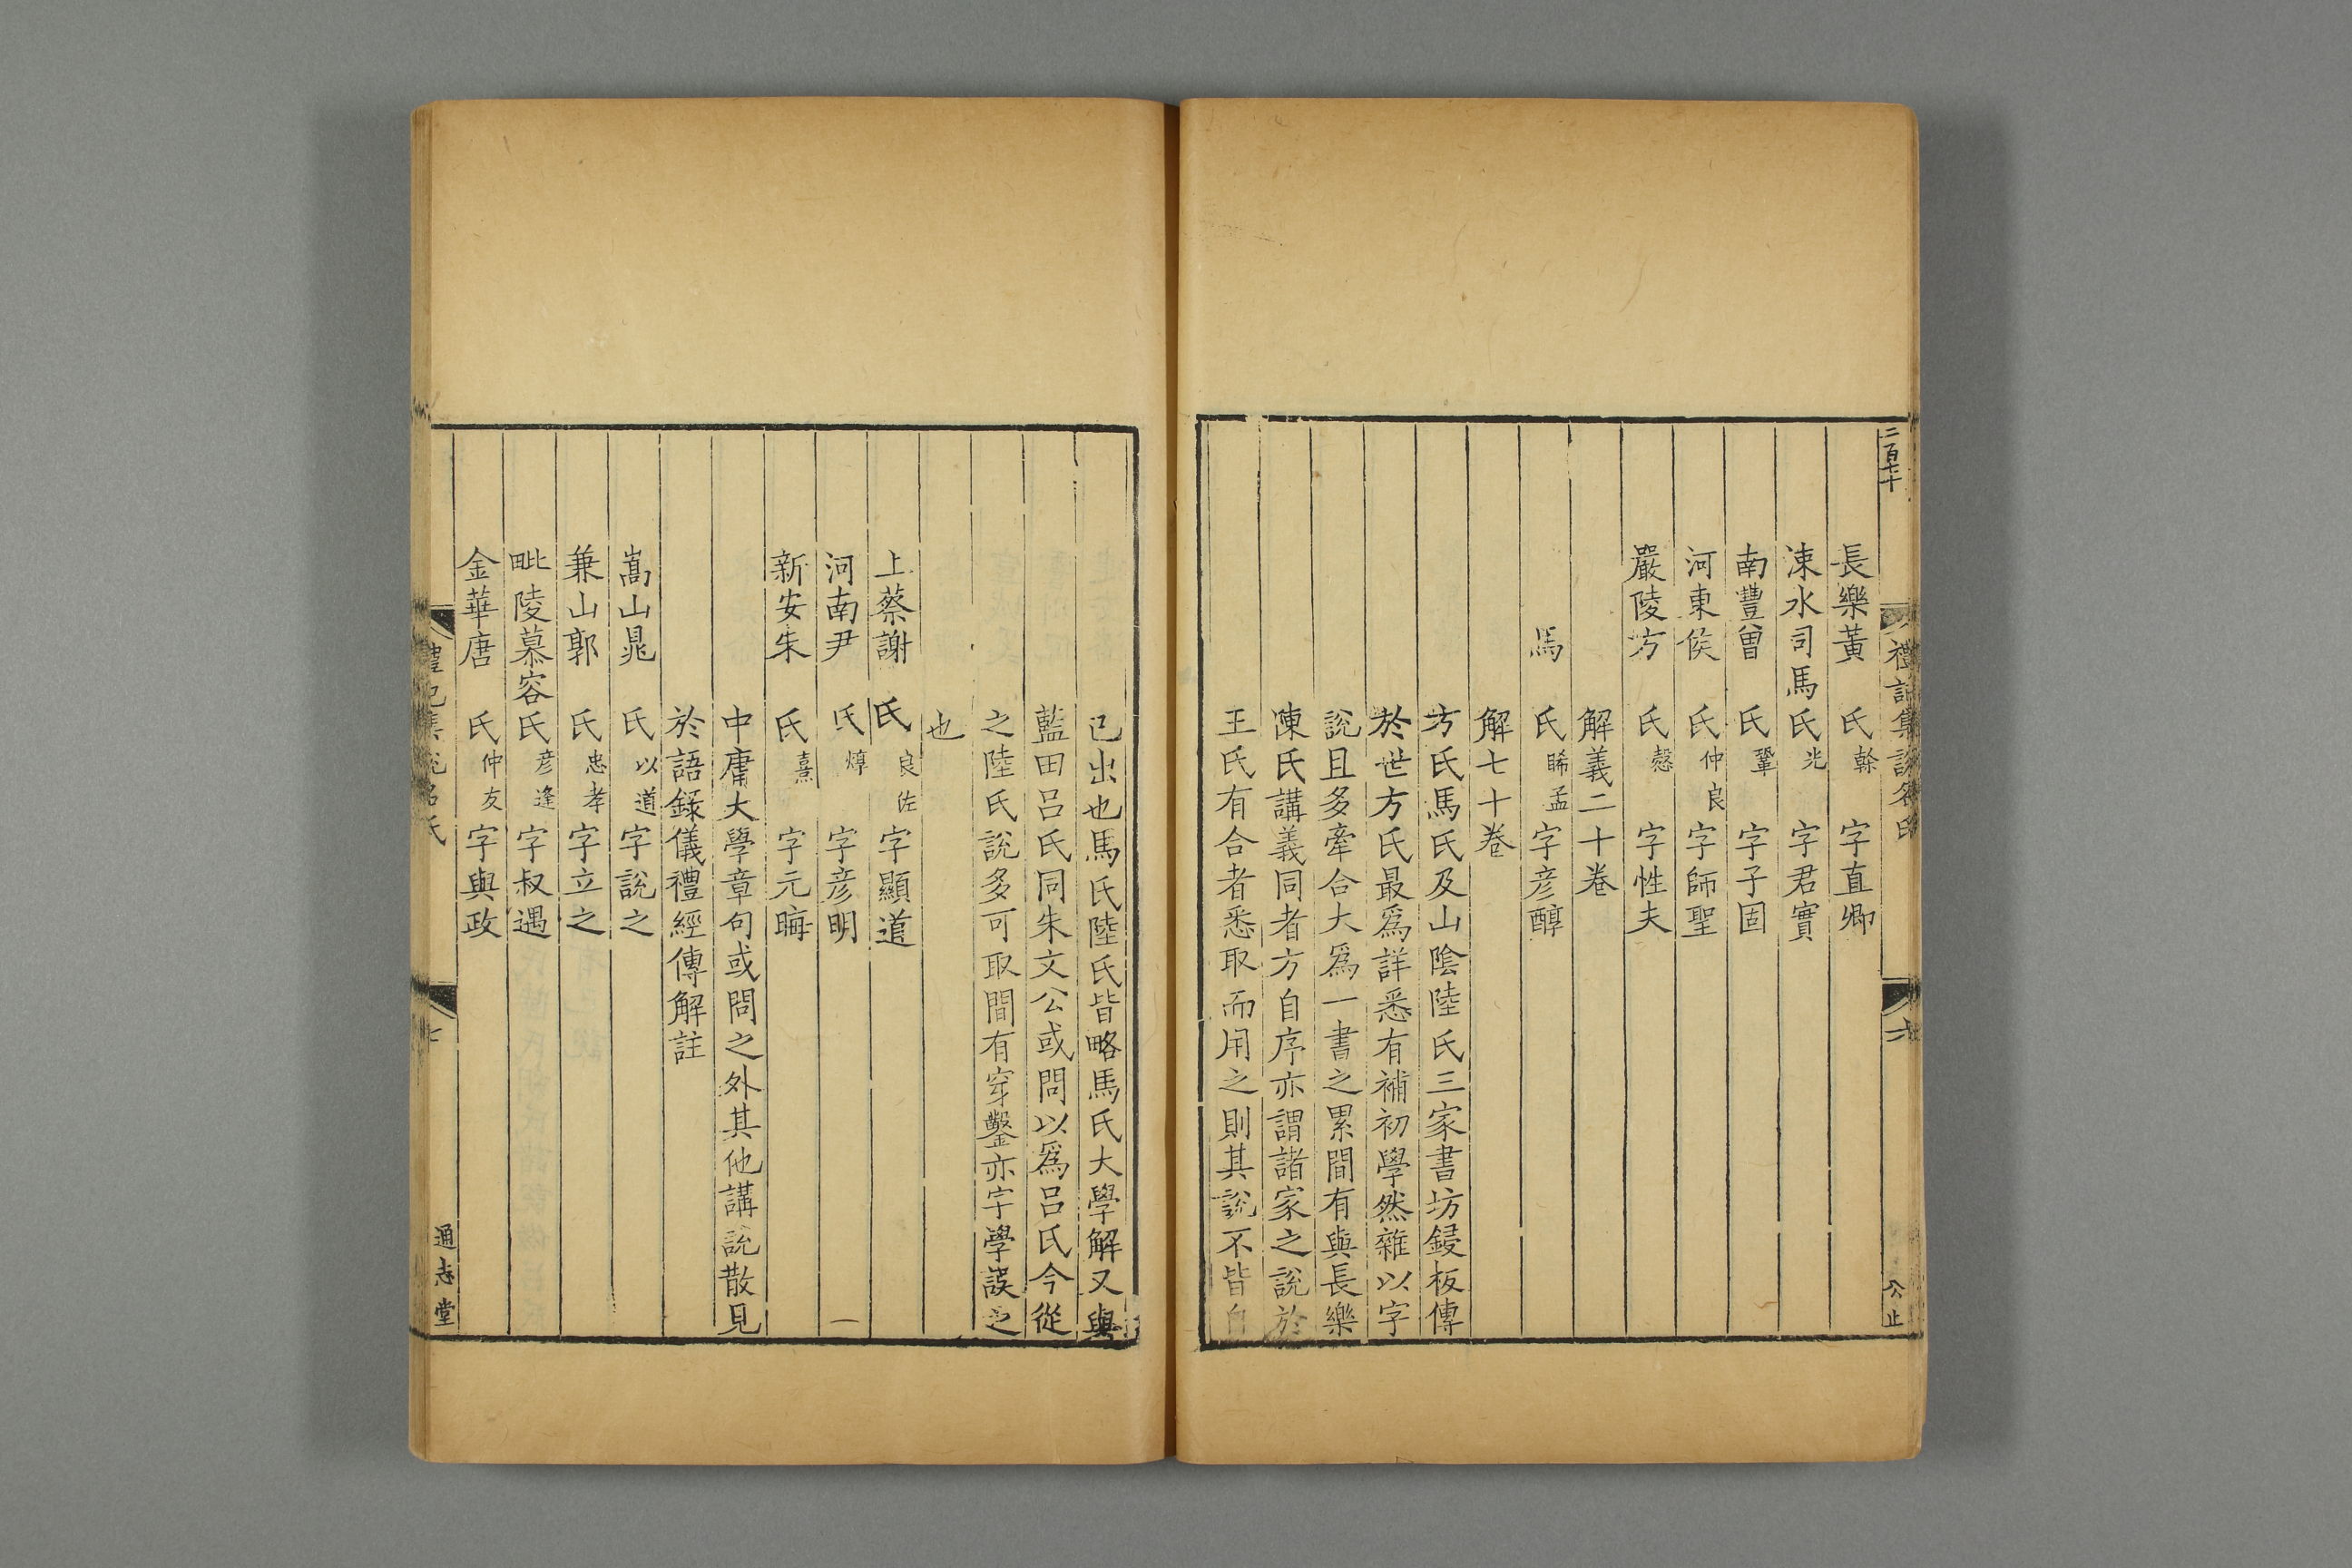 二百七十
禮記集說名氏
六
公止
長樂黃氏榦字直卿
涑水司馬氏光字君實
南豐曾氏鞏字子固
河東侯氏仲良字師聖
嚴陵方氏慤字性夫
解義二十卷
馬氏睎孟字彦醇
解七十卷
方氏馬氏及山陰陸氏三家書坊鋟板傳
於世方氏最爲詳悉有補初學然雜以字
說且多牽合大爲一書之累間有與長樂
陳氏講義同者方自序亦謂諸家之說於
王氏有合者悉取而用之則其說不皆自
己出也馬氏陸氏皆略馬氏大學解又與
藍田吕氏同朱文公或問以爲吕氏今從
之陸氏說多可取間有穿鑿亦字學誤之
也
上蔡謝氏良佐字顯道
河南尹氏焞字彦明
新安朱氏熹字元晦
中庸大學章句或問之外其他講說散見
於語錄儀禮經傳解註
嵩山晁氏以道字說之
兼山郭氏忠孝字立之
毗陵慕容氏彦逢字叔遇
金華唐氏仲友字與政
禮記集說名氏
七
通志堂